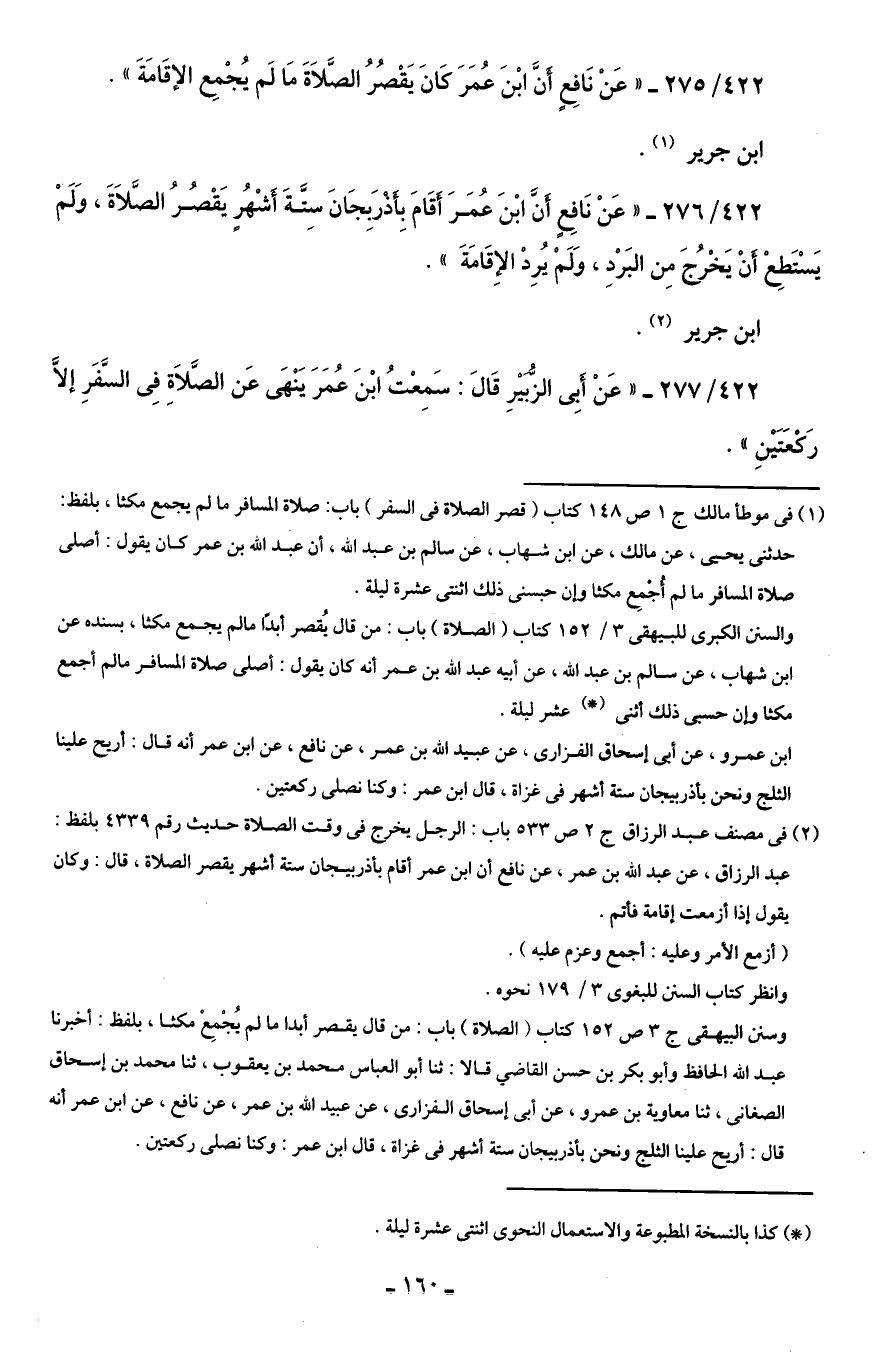 ٤٢٢/ ٢٧٥ ـ « عَنْ نَافِعٍ أَنَّ ابْنَ عُمَرَ كَانَ يَقْصُرُ الصَّلاَةَ مَا لَم يُجْمِعِ الإقَامَةَ » .
ابن جرير (١) .
٤٢٢/ ٢٧٦ ـ « عَنْ نَافِعٍ أَنَّ ابْنَ عُمَـرَ أَقَامَ بِأَذْرَبِجَانَ سِتَّـةَ أَشْهُرٍ يَقْصُـرُ الصَّلاَةَ ، وَلَمْ
يَسْتَطِعْ أَنْ يَخْرُجَ مِن البَرْدِ ، وَلَمْ يُرِدْ الإِقَامَةَ » .
ابن جرير (٢) .
٤٢٢/ ٢٧٧ ـ « عَنْ أَبِى الزُّبَيْرِ قَالَ : سَمِعْتُ ابْنَ عُمَرَ يَنْهَى عَن الصَّلاَةِ فِى السَّفَرِ إلاَّ
رَكْعَتَيْنِ » .
(١) فى موطأ مالك ج ١ ص ١٤٨ كتاب ( قصر الصلاة فى السفر ) باب: صلاة المسافر ما لم يجمع مكثا ، بلفظ:
حدثنى يحيـى ، عن مالك ، عن ابن شـهاب ، عن سالم بن عبد الله ، أن عبـد الله بن عمر كـان يقول : أصلى
صلاة المسافر ما لم أُجْمِع مكثا وإن حبسنى ذلك اثنتى عشرة ليلة .
والسنن الكبرى للبـيهقى ٣ / ١٥٢ كتاب ( الصـلاة ) باب : من قال يُقصر أبدًا مالم يجـمع مكثا ، بسنده عن
ابن شهاب ، عن سـالم بن عبد الله ، عن أبيه عبد الله بن عـمر أنه كان يقول : أصلى صلاة المسافـر مالم أجمع
مكثا وإن حسبى ذلك أثنى (*) عشر ليلة .
ابن عمـرو ، عن أبى إسحاق الفـزارى ، عن عبـيد الله بن عمـر ، عن نافع ، عن ابن عمر أنه قـال : أريح علينا
الثلج ونحن بأذربيجان ستة أشهر فى غزاة ، قال ابن عمر : وكنا نصلى ركعتين .
(٢) فى مصنف عبـد الرزاق ج ٢ ص ٥٣٣ باب : الرجـل يخرج فى وقت الصلاة حـديث رقم ٤٣٣٩ بلفظ :
عبد الرزاق ، عن عبد الله بن عمر ، عن نافع أن ابن عمر أقام بأذربيـجان ستة أشهر يقصر الصلاة ، قال : وكان
يقول إذا أزمعت إقامة فأتم .
( أزمع الأمر وعليه : أجمع وعزم عليه ) .
وانظر كتاب السنن للبغوى ٣ / ١٧٩ نحوه .
وسنن البيهـقى ج ٣ ص ١٥٢ كتاب ( الصلاة ) باب : من قال يقـصر أبدا ما لم يُجْمِعْ مكثـا ، بلفظ : أخبرنا
عبـد الله الحافظ وأبو بكر بن حسن القاضي قـالا : ثنا أبو العباس مـحمد بن يعقـوب ، ثنا محمد بن إسـحاق
الصغانى ، ثنا معاوية بن عمرو ، عن أبى إسحاق الـفزارى ، عن عبيد الله بن عمر ، عن نافع ، عن ابن عمر أنه
قال : أريح علينا الثلج ونحن بأذربيجان ستة أشهر فى غزاة ، قال ابن عمر : وكنا نصلى ركعتين .
(*) كذا بالنسخة المطبوعة والاستعمال النحوى اثنتى عشرة ليلة .
ـ ١٦٠ ـ